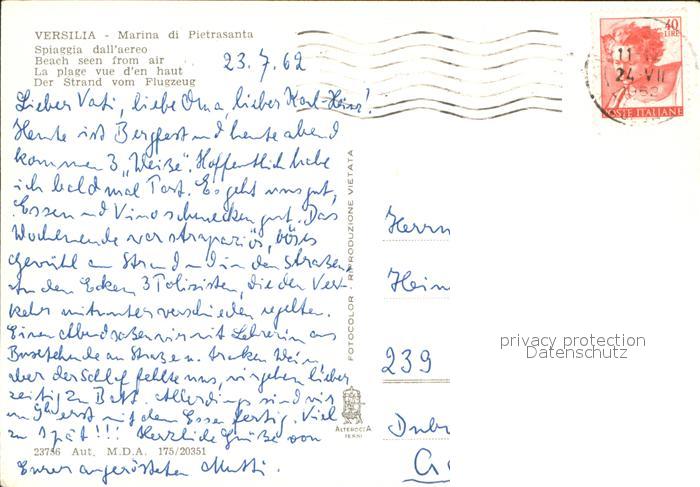 VERSILIA - Marina di Pietrasanta
Spiaggia dall'aereo
Beach seen from air
La plage vue d'en haut
Der Strand vom Flugzeug
23.7.62
40
LIRE
11
24 VII
1962
POSTE ITALIANE
Lieber Vati, liebe Oma, lieber Karl-Heinz!
Heute ist Bergfest und heute abend
kommen 3 „Weiße". Hoffentlich habe
ich bald mal Post. Es geht uns gut,
Essen und Vino schmecken gut. Das
Wochenende war strapaziös, böses
Gewühl am Strand und in den Straßen.
An den Ecken 3 Polizisten, die den Ver-
kehr mitunter verschieden regelten.
Einen Abend saßen wir mit Lehrerin aus
an Straße u. tranken Wein,
aber der Schlaf fehlte uns, wir gehen lieber
zeitig zu Bett. Allerdings sind wir
um 9h erst mit dem Essen fertig. Viel
zu spät!!! Herzliche Grüße von
Eurer Mutti.
23756 Aut. M.D.A. 175/20351
FOTOCOLOR - RIPRODUZIONE VIETATA
ALTEROCCA
TERNI
Herrn
Hein
239
privacy protection
Datenschutz